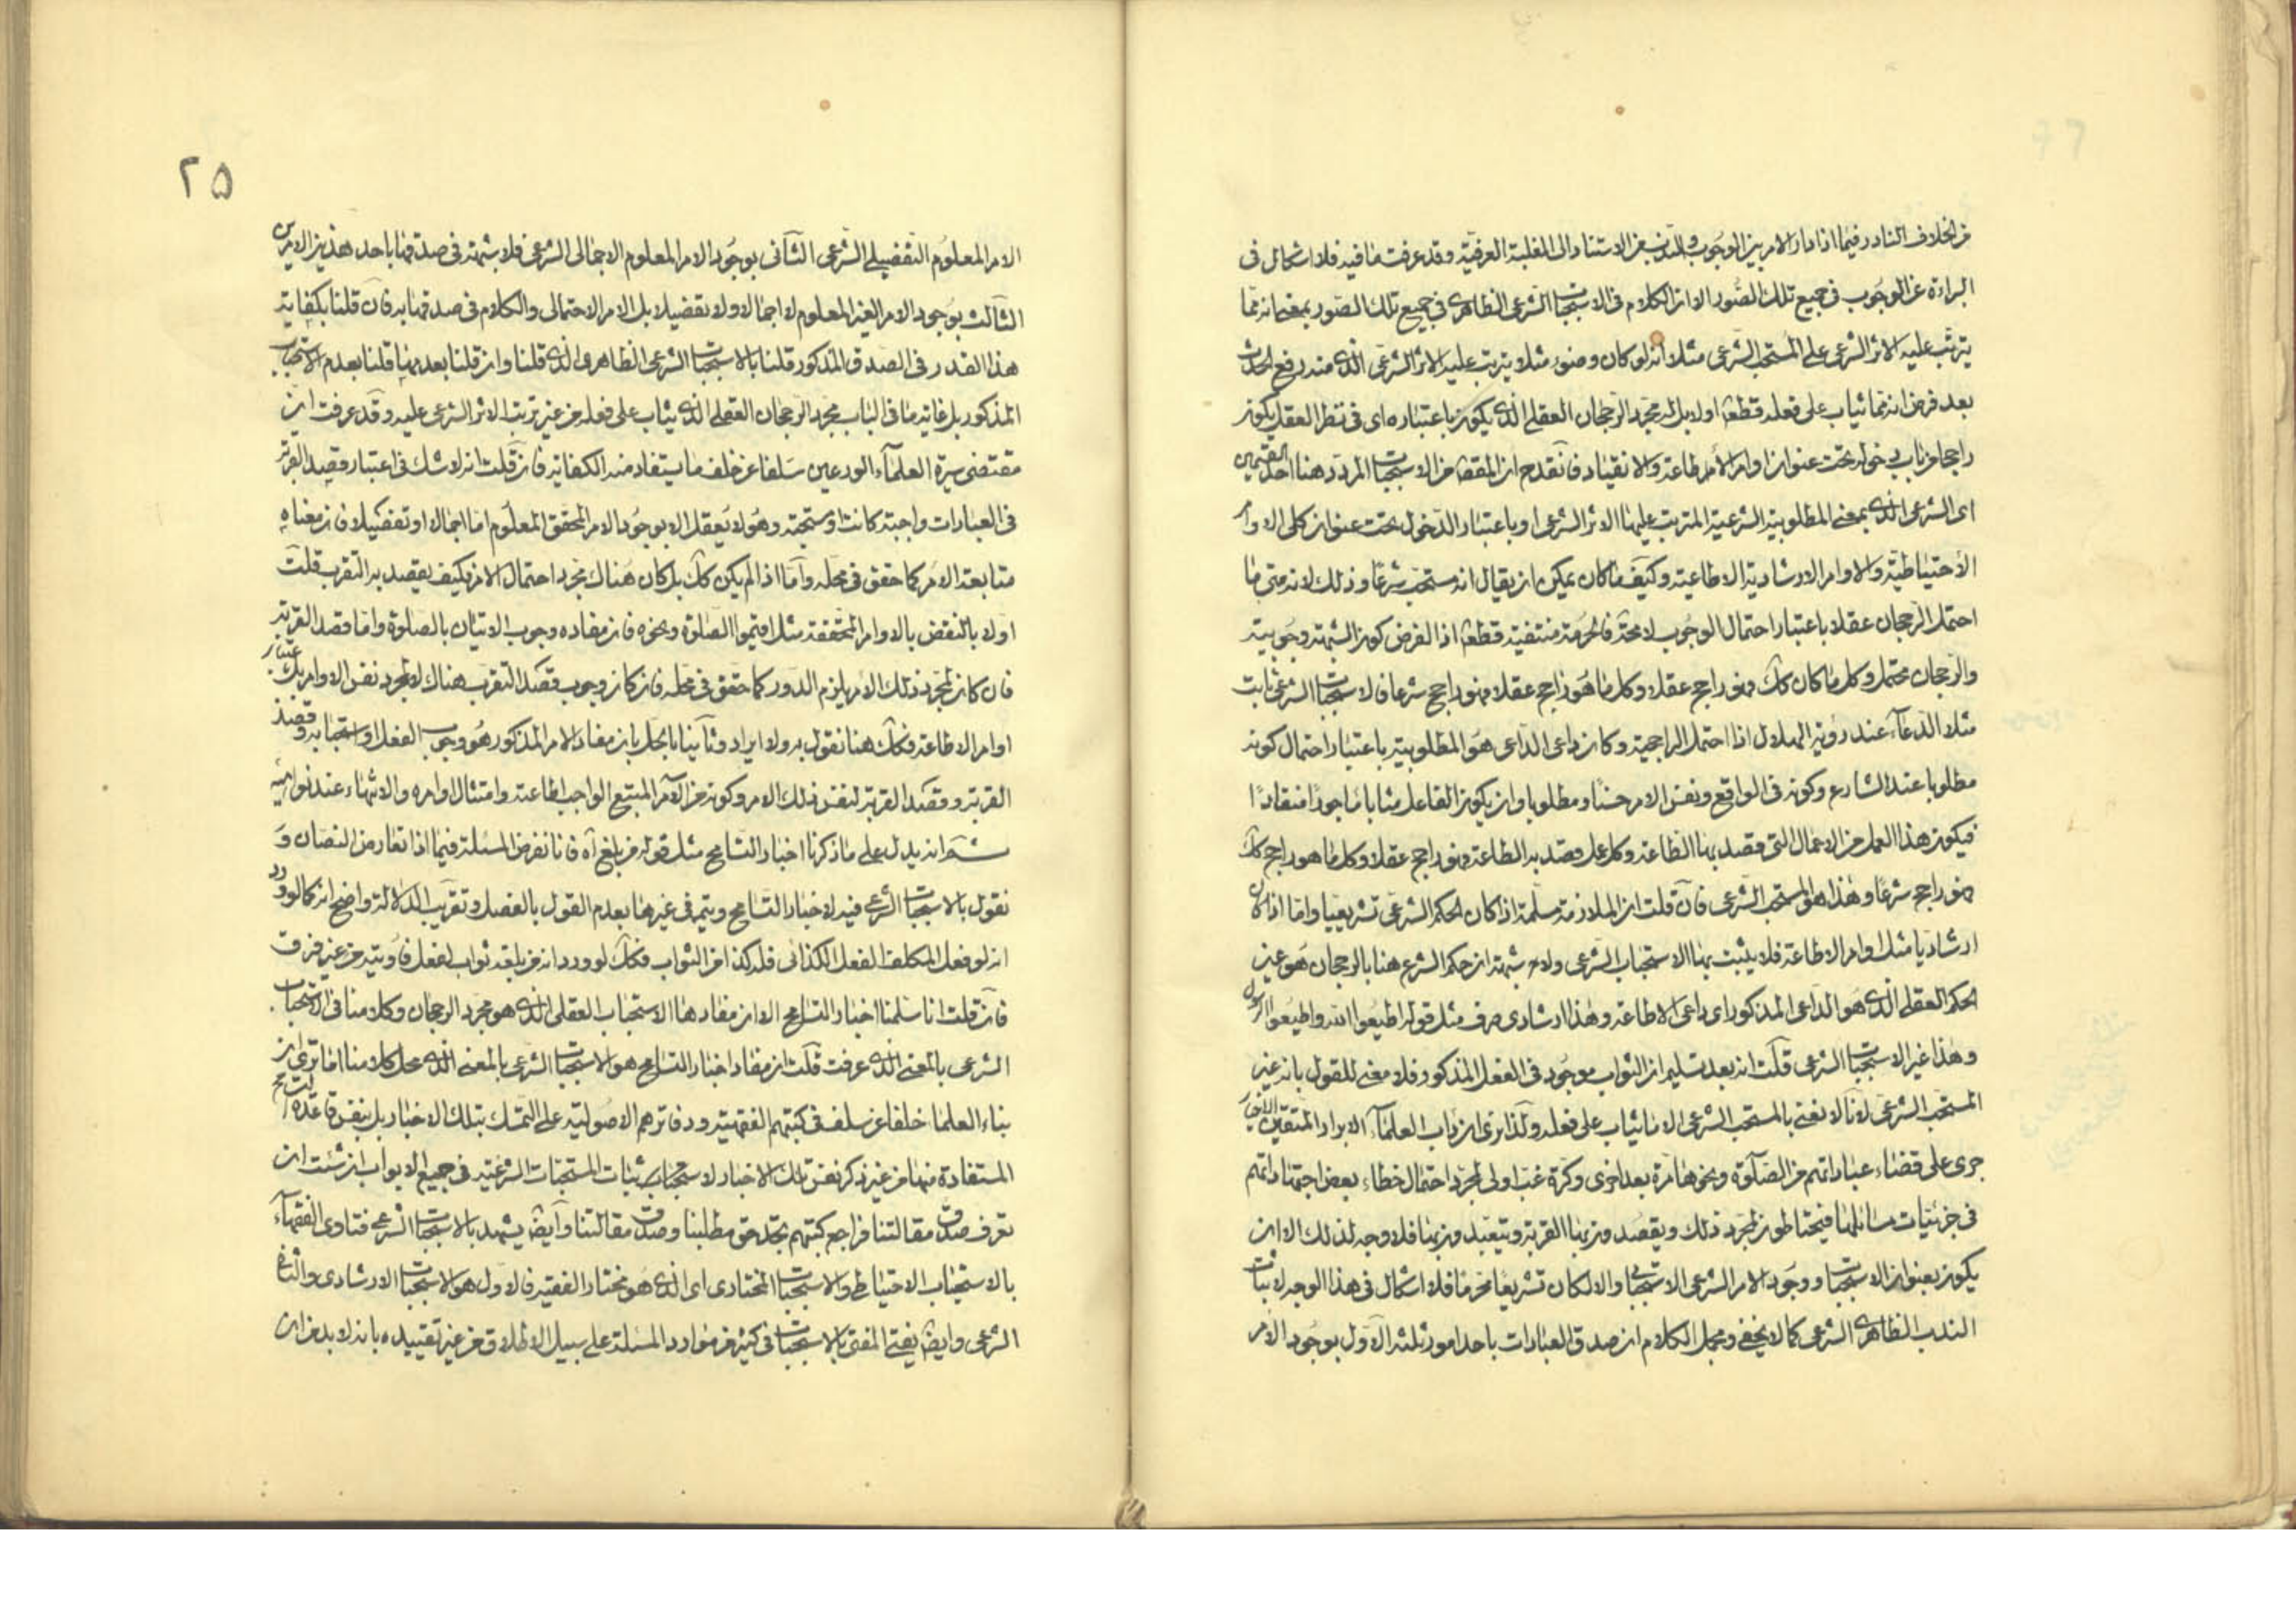 من الخلاف النادر فيما اذا دار الامر بين الوجوب والندب من الاستناد الى الغلبة العرفية وقد عرفت ما فيه فلا اشكال فى
البراءة عن الوجوب فى جميع تلك الصور الا ان الكلام فى الاستحباب الشرعى الظاهرى فى جميع تلك الصور بمعنى انه مما
يترتب عليه الاثر الشرعى على المستحب الشرعى مثلا انه لو كان وضوء مثلا يترتب عليه الاثر الشرعى الذى منه رفع الحدث
بعد فرض انه مما يثاب على فعله قطعا اولا بل له مجرد الرجحان العقلى الذى يكون باعتباره اى فى نظر العقل يكون
راجحا من باب دخوله تحت عنوان اوامر الاطاعة والانقياد فانقدح ان المقصود من الاستحباب المردد هنا احد القسمين
اى الشرعى الذى بمعنى المطلوبية الشرعية المترتب عليها الاثر الشرعى او باعتبار الدخول تحت عنوان كلى الاوامر
الاحتياطية والاوامر الارشادية الاطاعية وكيف ما كان يمكن ان يقال انه مستحب شرعا وذلك لانه متى ما
احتمل الرجحان عقلا باعتبار احتمال الوجوب لا محة فالحرمة منتفية قطعا اذ الفرض كون الشبهة وجوبية
والرجحان محتمل وكل ما كان كك فهو راجح عقلا وكل ما هو راجح عقلا فهو راجح شرعا فالاستحباب الشرعى ثابت
مثلا الدعاء عند رؤية الهلال اذا احتمل الراجحية وكان داعى الداعى هو المطلوبية باعتبار احتمال كونه
مطلوبا عند الشارع وكونه فى الواقع ونفس الامر حسنا ومطلوبا وان يكون الفاعل مثابا ماجورا منقادا
فيكون هذا العمل من الاعمال التى قصد بها الطاعة وكل عمل قصد به الطاعة فهو راجح عقلا وكل ما هو راجح كك
فهو راجح شرعا وهذا هو المستحب الشرعى فان قلت ان الملازمة مسلمة اذا كان الحكم الشرعى تشريعيا واما اذا كان
ارشاديا مثل اوامر الاطاعة فلا يثبت بها الاستحباب الشرعى ولا شبهة ان حكم الشرع هنا بالرجحان هو عين
الحكم العقلى الذى هو الداعى المذكور اى داعى الاطاعة وهذا ارشادى صرف مثل قوله اطيعوا الله واطيعوا الرسول
وهذا غير الاستحباب الشرعى قلت انه بعد تسليم ان الثواب موجود فى الفعل المذكور فلا معنى للقول بانه غير
المستحب الشرعى لانا لا نعنى بالمستحب الشرعى الا ما يثاب على فعله ولذا ترى ان داب العلماء الابرار المتقين الاخيار
جرى على قضاء عباداتهم من الصلوة ونحوها مرة بعد اخرى وكرة غب اولى لمجرد احتمال خطاء بعض اجتهاداتهم
فى جزئيات مسائلها فيحتاطون لمجرد ذلك ويقصدون بها القربة ويتعبدون بها فلا وجه لذلك الا ان
يكون بعنوان الاستحباب ووجود الامر الشرعى الاستحبابى والا لكان تشريعا محرما فلا اشكال فى هذا الوجه لاثبات
الندب الظاهرى الشرعى كما لا يخفى ومجمل الكلام ان صدق العبادات باحد امور ثلثة الاول بوجود الامر
۲۵
الامر المعلوم التفضيلى الشرعى الثانى بوجود الامر المعلوم الاجمالى الشرعى فلا شبهة فى صدقها باحد هذين الامرين
الثالث بوجود الامر الغير المعلوم لا اجمالا ولا تفضيلا بل الامر الاحتمالى والكلام فى صدقها به فان قلنا بكفاية
هذا القدر فى الصدق المذكور قلنا بالاستحباب الشرعى الظاهرى الذى قلنا وان قلنا بعدمها قلنا بعدم الاستحباب
المذكور بل غاية ما فى الباب مجرد الرجحان العقلى الذى يثاب على فعله من غير ترتب الاثر الشرعى عليه وقد عرفت ان
مقتضى سيرة العلماء الورعين سلفا عن خلف ما يستفاد منه الكفاية فان قلت انه لا شك فى اعتبار قصد القربة
فى العبادات واجبة كانت او مستحبة وهو لا يعقل الا بوجود الامر المحقق المعلوم اما اجمالا او تفضيلا فان معناه
متابعة الامر كما حقق فى محله واما اذا لم يكن كك بل كان هناك مجرد احتمال الامر فكيف يقصد به التقرب قلت
اولا بالنقض بالاوامر المحققة مثل اقيموا الصلوة ونحوه فان مفاده وجوب الاتيان بالصلوة واما قصد القربة
فان كان لمجرد ذلك الامر يلزم الدور كما حقق فى محله فان كان وجوب قصد التقرب هناك لا لمجرد نفس الاوامر بل باعتبار
اوامر الاطاعة فكك هنا نقول به ولا ايراد وثانيا بالحل بان مفاد الامر المذكور هو وجوب الفعل او استحبابه وقصد
القربة وقصد القربة لنفس ذلك الامر وكونه من الامر المتبع الواجب اطاعته وامتثال اوامره والانتهاء عند نواهيه
ثم انه يدل على ما ذكرنا اخبار التسامح مثل قوله من بلغ آه فانا نفرض المسئلة فيما اذا تعارض النصان و
نقول بالاستحباب الشرعى فيه لاخبار التسامح ويتم فى غيرها بعدم القول بالفصل وتقريب الدلالة واضح انه كما لو ورد
انه لو فعل المكلف الفعل الكذائى فله كذا من الثواب فكك لو ورد انه من بلغه ثواب لفعل فاوتيه من غير فرق
فان قلت انا سلمنا اخبار التسامح الا ان مفادها الاستحباب العقلى الذى هو مجرد الرجحان وكلامنا فى الاستحباب
الشرعى بالمعنى الذى عرفت قلت ان مفاد اخبار التسامح هو الاستحباب الشرعى بالمعنى الذى محل كلامنا اما ترى ان
بناء العلما خلفا عن سلف فى كتبهم الفقهية ودفاترهم الاصولية على التمسك بتلك الاخبار بل بنفس قاعدة التسامح
المستفادة منها من غير ذكر نفس تلك الاخبار لاثبات المستحبات الشرعية فى جميع الابواب ان شئت ان
تعرف صدق مقالتنا فراجع كتبهم تجد حق مطلبنا وصدق مقالتنا وايض يشهد بالاستحباب الشرعى فتاوى الفقهاء
بالاستحباب الاحتياطى والاستحباب المختارى اى الذى هو مختار الفقيه فالاول هو الاستحباب الارشادى والثانى
الشرعى وايض يفتى المفتى بالاستحباب فى كثير من موارد المسئلة على سبيل الاطلاق من غير تقييده بانه لا بد من ان